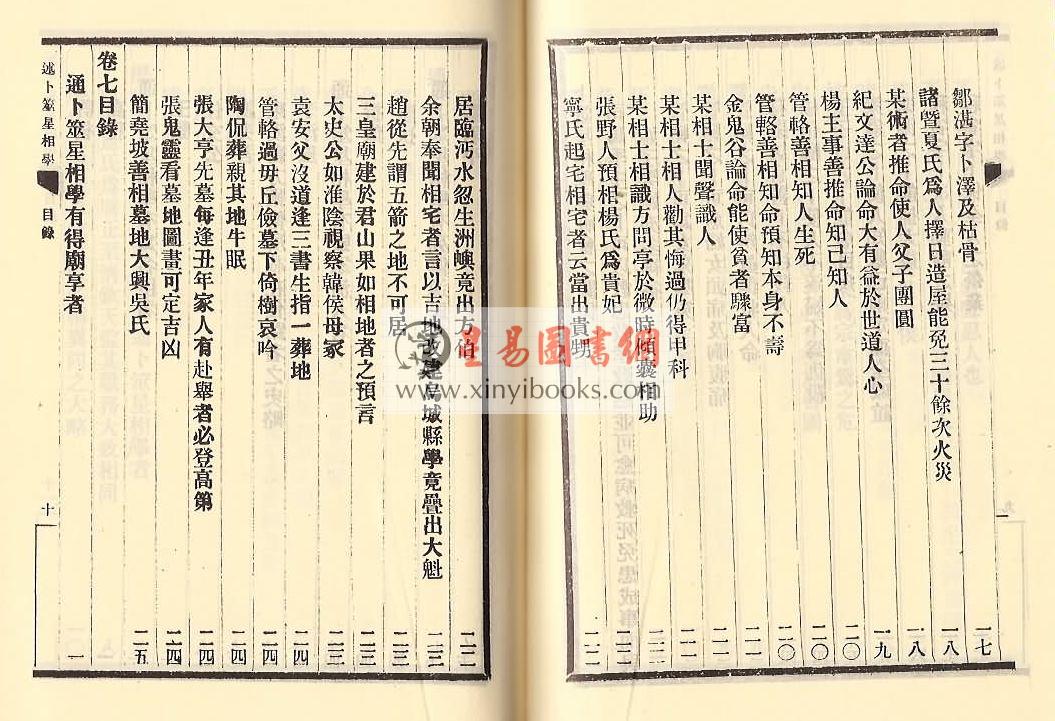 鄒湛字卜澤及枯骨 一七
諸暨夏氏爲人擇日造屋能免三十餘次火災 一八
某術者推命使人父子團圓 一八
紀文達公論命大有益於世道人心 一九
楊主事善推命知己知人 二〇
管輅善相知人生死 二〇
管輅善相知命預知本身不壽 二〇
金鬼谷論命能使貧者驟富 二一
某相士聞聲識人 二一
某相士相人勸其悔過仍得甲科
某相士相識方問亭於微時傾囊相助
張野人預相楊氏爲貴妃
寧氏起宅相宅者云當出貴甥
居臨沔水忽生洲嶼竟出方伯
余朝奉聞相宅者言以吉地改建烏城縣學竟疊出大魁
趙從先謂五箭之地不可居
三皇廟建於君山果如相地者之預言
太史公如淮陰視察韓侯母冢
袁安父沒道逢三書生指一葬地 二四
管輅過毋丘儉墓下倚樹哀吟 二四
陶侃葬親其地牛眠 二四
張大亨先墓每逢丑年家人有赴舉者必登高第 二四
張鬼靈看墓地圖畫可定吉凶 二四
簡堯坡善相墓地大興吳氏 二五
卷七目錄
通卜筮星相學有得廟享者 一
述卜筮星相學 目錄 十
星易圖書網
www.xinyibooks.com